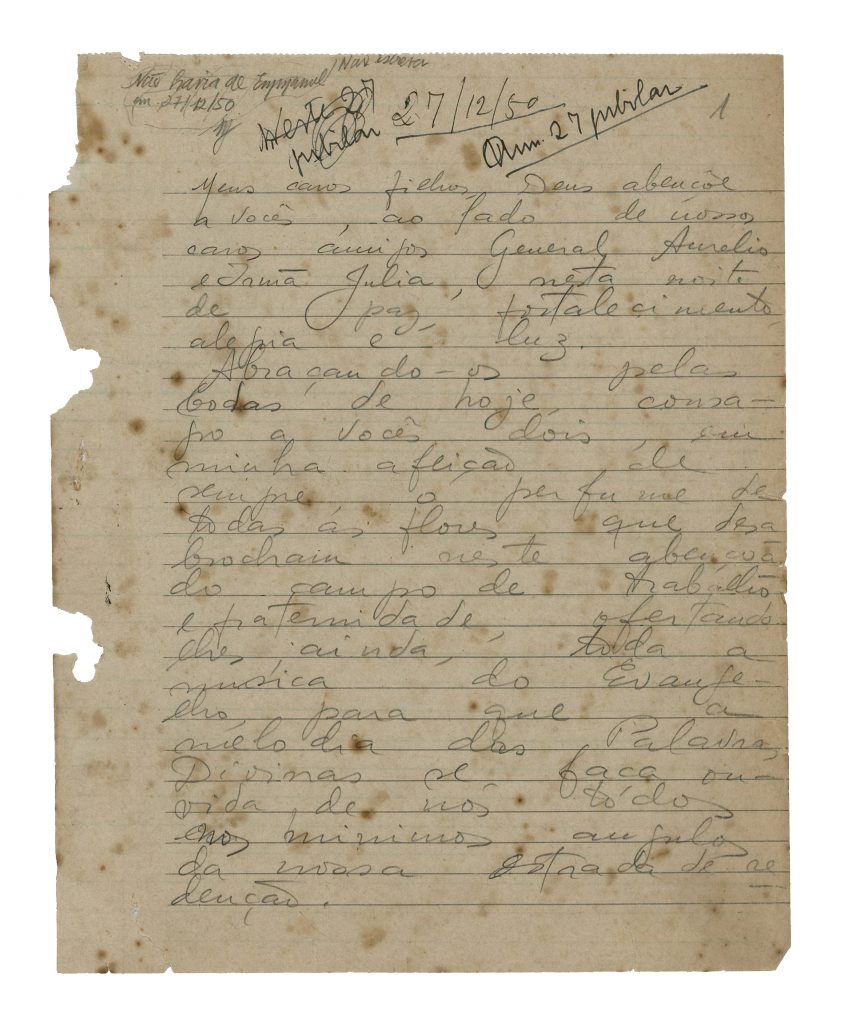 Não havia de Emmanuel
em 27/12/50
27/12/50
1
Num. 27 jubilar
jubilar
Meus caros filhos, Deus abençôe
a vocês, ao lado de nossos
caros amigos General Aurelio
e Irmã Julia, nesta noite
de paz, fortalecimento,
alegria e luz.
Abraçando-os pelas
bodas de hoje, consa-
gro a vocês dois, em
minha afeição de
sempre o perfume de
todas as flores que desa
brocham neste abençoa
do campo de trabalho
e fraternidade, ofertando
lhes, ainda, toda a
musica do Evange-
lho, para que a
melodia das Palavras
Divinas se faça ou-
vida de nós todos
nos minimos angulos
da nossa estrada de re
denção.